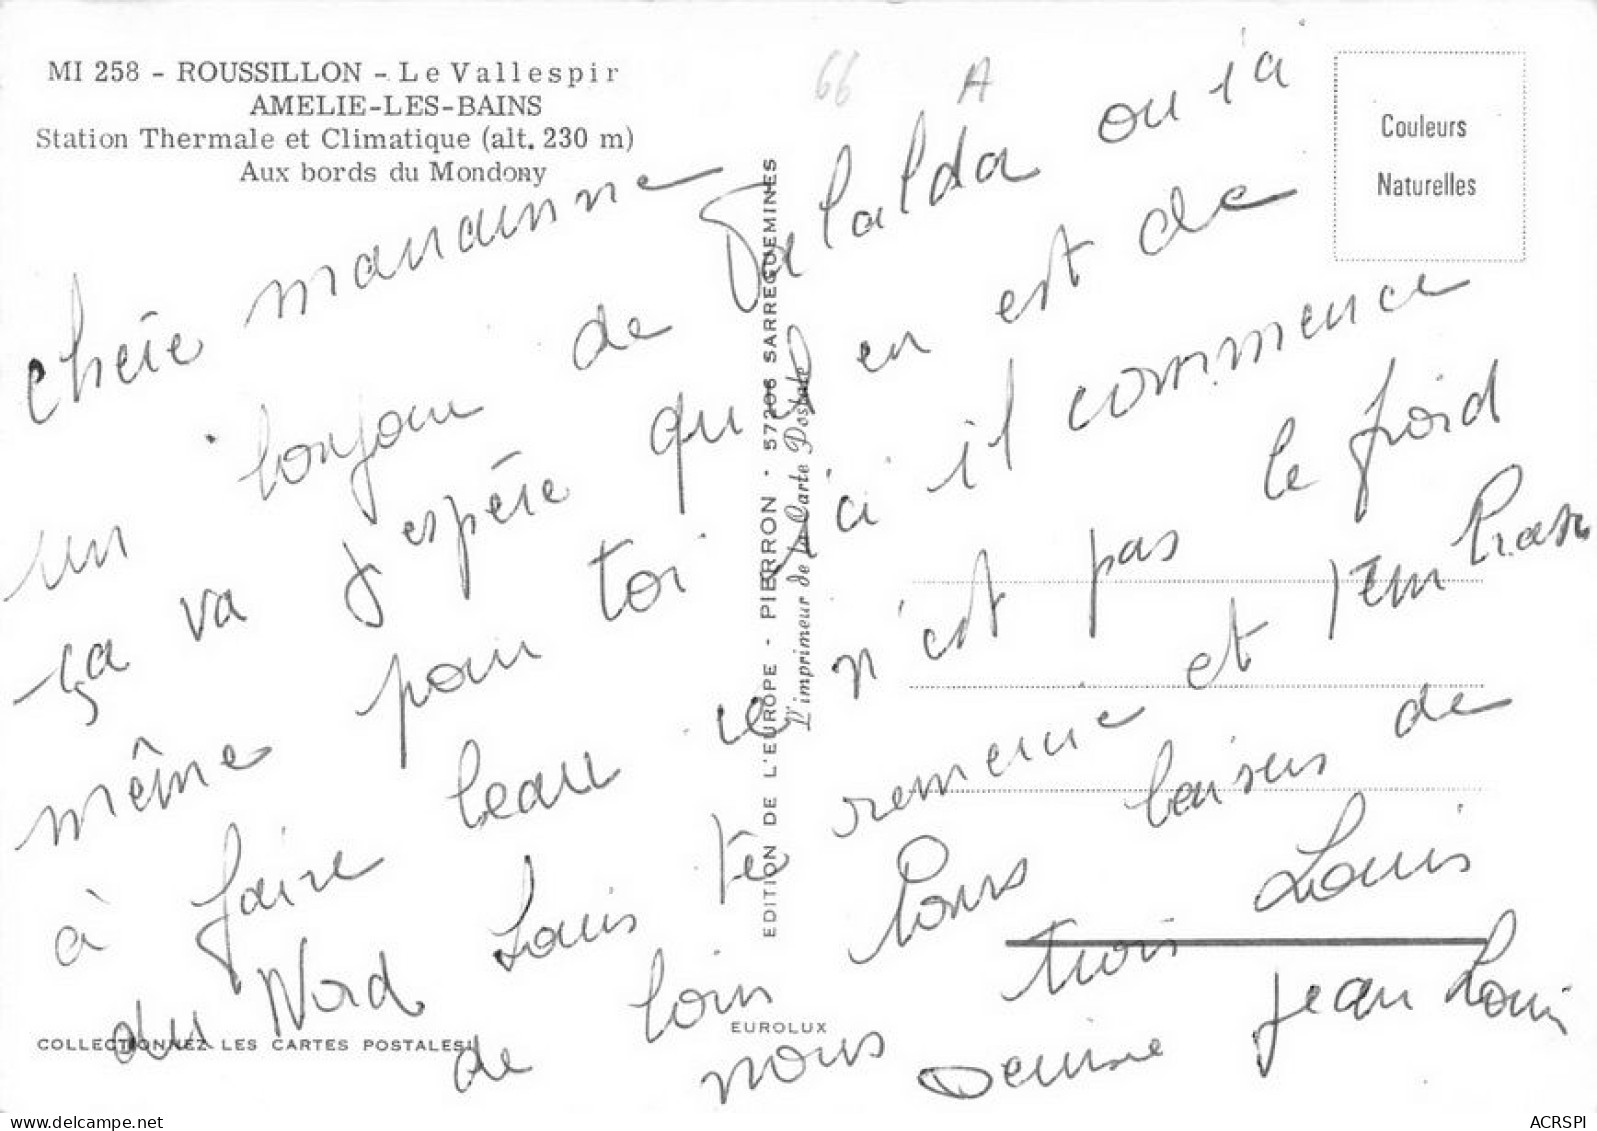 MI 258 - ROUSSILLON - Le Vallespir
AMELIE-LES-BAINS
Station Thermale et Climatique (alt. 230 m)
Aux bords du Mondony
66
A
Couleurs
Naturelles
Chère marraine
un bonjour de Palalda ou ia
ça va J'espère qu'il en est de
même pour toi ici il commence
à faire beau ce n'est pas le froid
du Nord Louis te remercie et t'embrasse
de loin Bons baisers de
nous trois Louis
Denise Jean Louis
EDITION DE L'EUROPE - PIERRON - 57206 SARREGUEMINES
L'imprimeur de la Carte Postale
EUROLUX
COLLECTIONNEZ LES CARTES POSTALES!
delcampe.net
ACRSPI